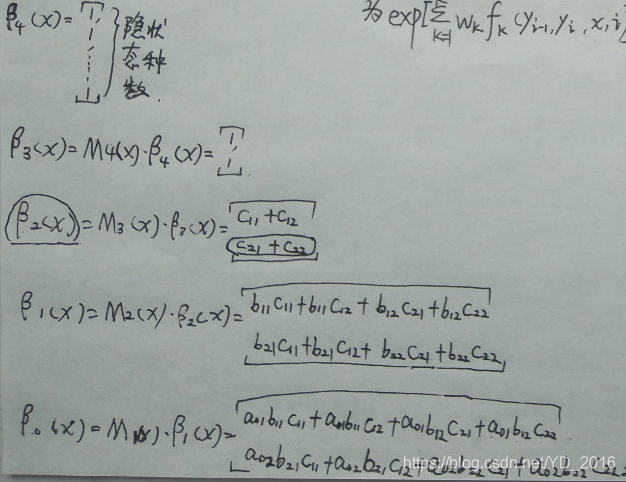 β₄(x) = [1 ⋮ 1] } 隐状态种数.
为 exp[Σ k=1 wₖfₖ(yᵢ₋₁, yᵢ, x, i)
β₃(x) = M4(x)·β₄(x) = [1 1].
β₂(x) = M₃(x)·β₃(x) = [c₁₁+c₁₂
c₂₁+c₂₂]
β₁(x) = M₂(x)·β₂(x) = [b₁₁c₁₁+b₁₁c₁₂+b₁₂c₂₁+b₁₂c₂₂
b₂₁c₁₁+b₂₁c₁₂+b₂₂c₂₁+b₂₂c₂₂]
β₀(x) = M₁(x)·β₁(x) = [a₀₁b₁₁c₁₁+a₀₁b₁₁c₁₂+a₀₁b₁₂c₂₁+a₀₁b₁₂c₂₂
a₀₂b₂₁c₁₁+a₀₂b₂₁c₁₂+a₀₂b₂₂c₂₁+a₀₂b₂₂c₂₂
https://blog.csdn.net/YD_2016